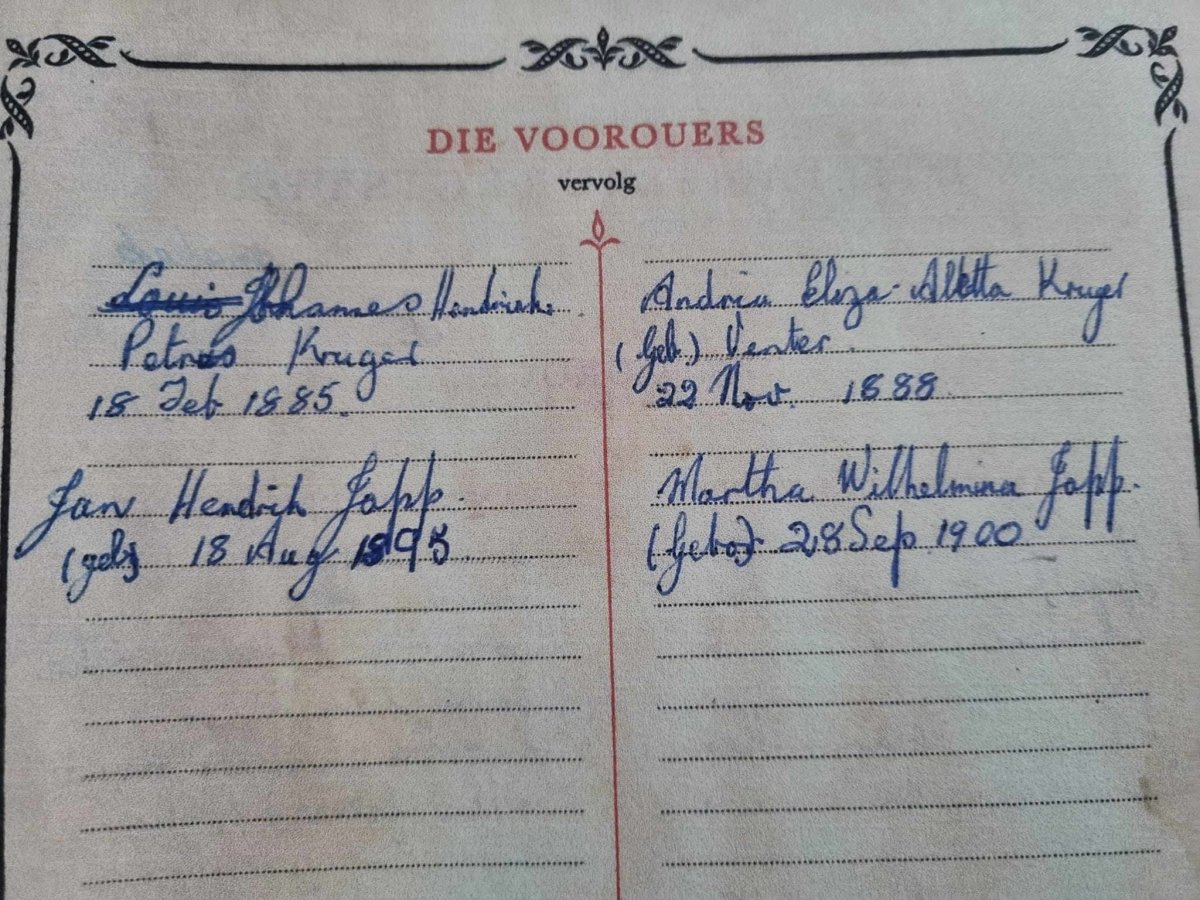 DIE VOOROUERS
vervolg
Louis Johannes Hendrik
Petrus Kruger
18 Feb 1885.
Jan Hendrik Japp.
(geb) 18 Aug 1895
Andria Eliza Aletta Kruger
(Geb.) Venter.
22 Nov. 1888.
Martha Wilhelmina Japp.
(Gebo) 28 Sep. 1900